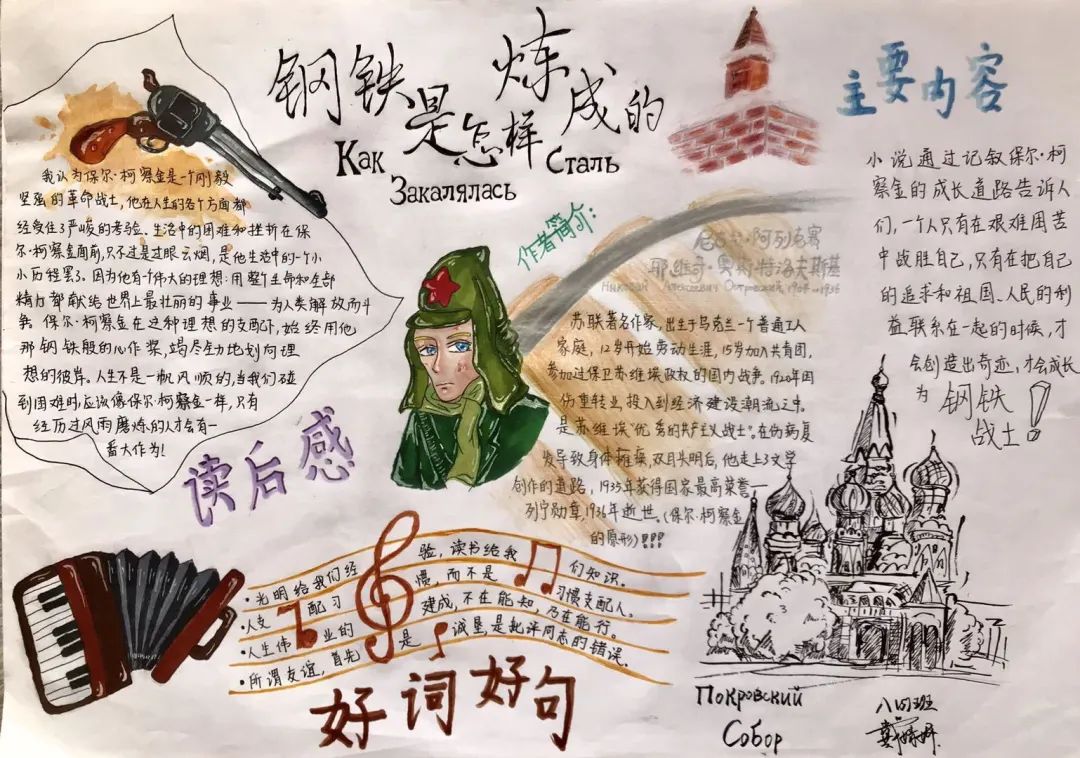 钢铁是怎样炼成的
Как
Закалялась
Сталь
我认为保尔·柯察金是一个刚毅
坚强的革命战士，他在人生的各个方面都
经受住了严峻的考验。生活中的困难和挫折在保
尔·柯察金面前，只不过是过眼云烟，是他生活中的一个小
小历程罢了。因为他有个伟大的理想：用整个生命和全部
精力都献给世界上最壮丽的事业——为人类解放而斗
争。保尔·柯察金在这种理想的支配下，始终用他
那钢铁般的心作桨，竭尽全力地划向理
想的彼岸。人生不是一帆风顺的，当我们碰
到困难时，应该像保尔·柯察金一样，只有
经历过风雨磨炼的人才会有一
番大作为！
读后感
作者简介：
尼古拉·阿列克赛
耶维奇·奥斯特洛夫斯基
Николай Алексеевич Островский 1904-1936
苏联著名作家，出生于乌克兰一个普通工人
家庭，12岁开始劳动生涯，15岁加入共青团，
参加过保卫苏维埃政权的国内战争。1920年因
伤重转业，投入到经济建设潮流之中。
是苏维埃“优秀的共产主义战士”。在伤病复
发导致身体瘫痪，双目失明后，他走上了文学
创作的道路，1935年获得国家最高荣誉一
列宁勋章，1936年逝世。（保尔·柯察金
的原形）!!!
主要内容
小说通过记叙保尔·柯
察金的成长道路告诉人
们，一个人只有在艰难困苦
中战胜自己，只有在把自己
的追求和祖国、人民的利
益联系在一起的时候，才
会创造出奇迹，才会成长
为钢铁
战士！
·光明给我们经验，读书给我们知识。
·人支配习惯，而不是习惯支配人。
·人生伟业的建成，不在能知，乃在能行。
·所谓友谊，首先是诚垦，是批评同志的错误。
好词好句
Покровский
Собор
八四班